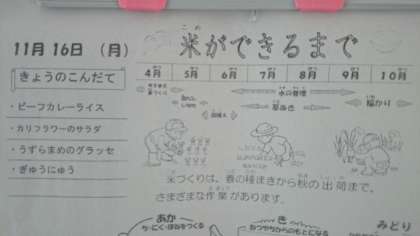 11月16日 (月)
きょうのこんだて
・ビーフカレーライス
・カリフラワーのサラダ
・うずらまめのグラッセ
・ぎゅうにゅう
こめ
米ができるまで
4月 5月 6月 7月 8月 9月 10月
水の管理
草ぬき
稲かり
田植え
米づくりは、春の種まきから秋の出荷まで、
さまざまな作業があります。
あか
ち・にく・ほねをつくる
き
みどり